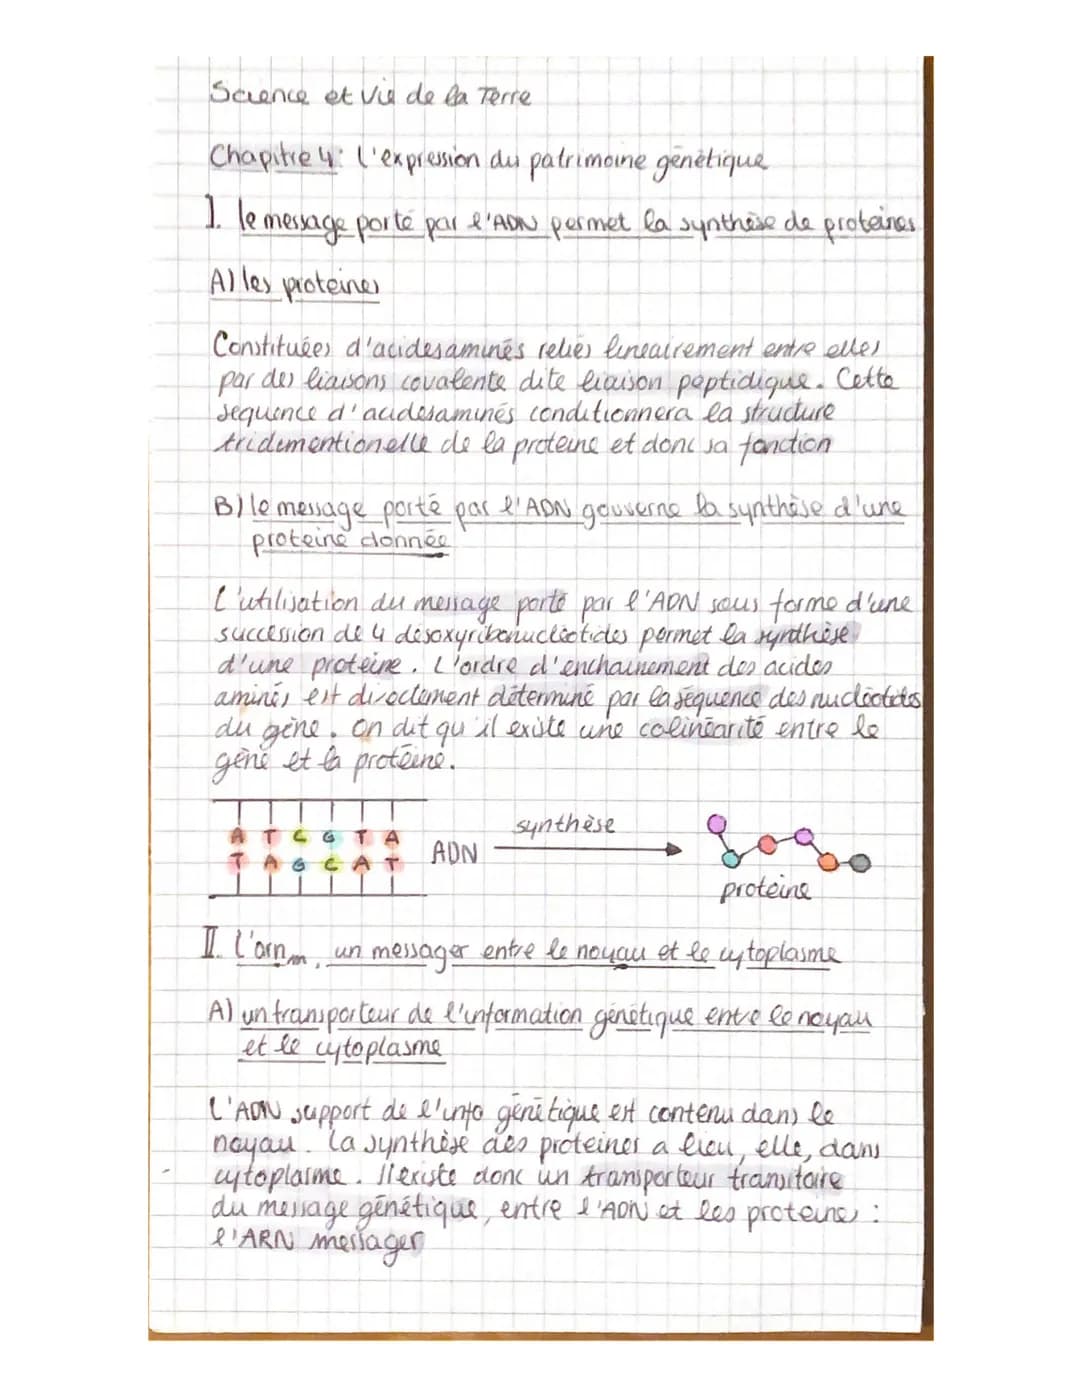 Science et Vie de la Terre
Chapitre 4: l'expression du patrimoine génétique
I. le message porté par l'ADN permet la synthèse de proteines
A) les proteines
Constituées d'acides aminés reliés lineairement entre elles
par des liaisons covalente dite liaison peptidique. Cette
sequence d'acides aminés conditionnera la structure
tridimentionelle de la proteine et donc sa fonction
B) le message porté par l'ADN gouverne la synthèse d'une
proteine donnée
L'utilisation du message porté par l'ADN sous forme d'une
succession de 4 désoxyribonucléotides permet la synthèse
d'une proteine. L'ordre d'enchainement des acides
aminés est directement déterminé par la séquence des nucléotides
du gène. On dit qu'il existe une colinéarité entre le
gène et la protéine.
A T C G T A
T A G C A T
ADN
synthèse
proteine
II. L'arnm, un messager entre le noyau et le cytoplasme
A) un transporteur de l'information génétique entre le noyau
et le cytoplasme
L'ADN support de l'info génétique est contenu dans le
noyau. La synthèse des proteines a lieu, elle, dans
cytoplasme. Il existe donc un transporteur transitoire
du message génétique, entre l'ADN et les proteines :
l'ARN messager